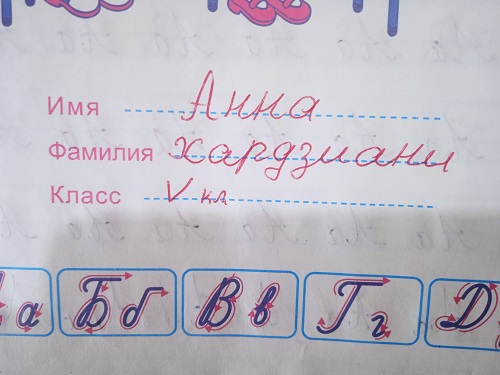 Имя Анна
Фамилия Хардзиани
Класс V кл
а Б б В в Г г Д